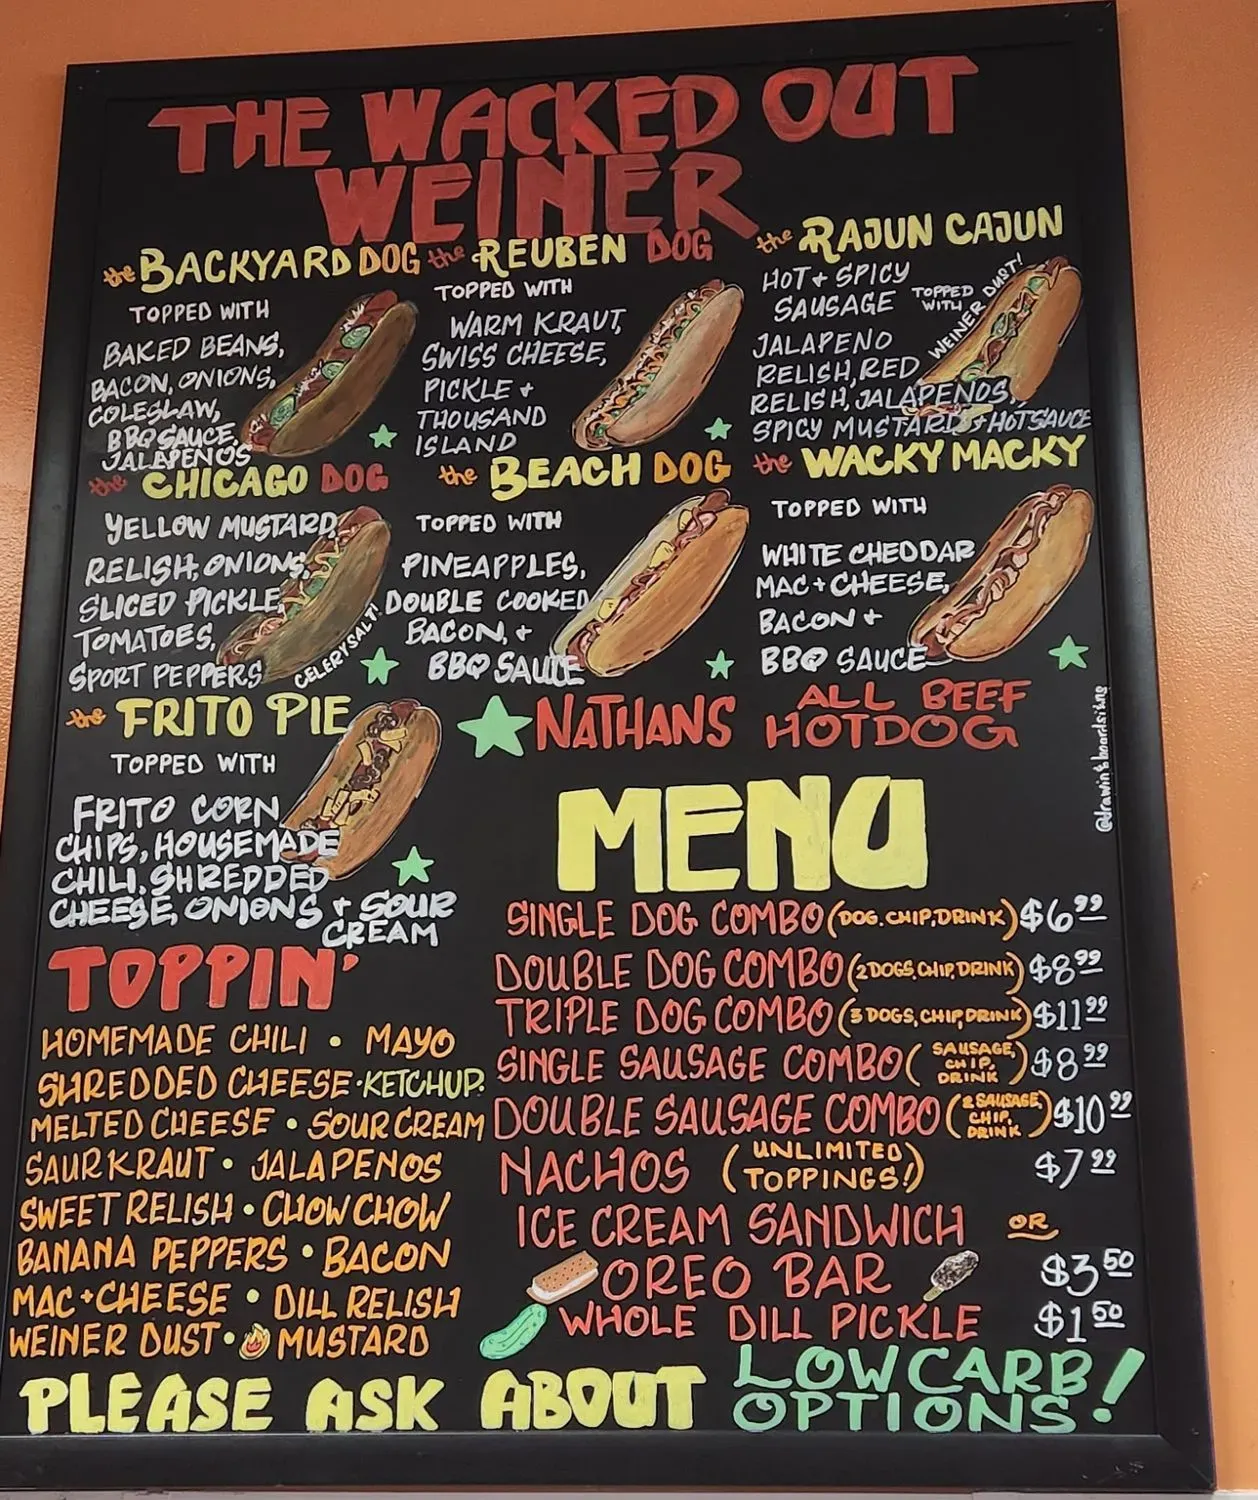 THE WACKED OUT
WEINER
the BACKYARD DOG
TOPPED WITH
BAKED BEANS,
BACON, ONIONS,
COLESLAW,
BBQ SAUCE,
JALAPENOS
the REUBEN DOG
TOPPED WITH
WARM KRAUT,
SWISS CHEESE,
PICKLE +
THOUSAND
ISLAND
the RAJUN CAJUN
HOT + SPICY
SAUSAGE
TOPPED
WITH
WEINER DUST!
JALAPENO
RELISH, RED
RELISH, JALAPENOS,
SPICY MUSTARD + HOT SAUCE
the CHICAGO DOG
YELLOW MUSTARD,
RELISH, ONIONS,
SLICED PICKLE,
TOMATOES,
SPORT PEPPERS
CELERY SALT!
the BEACH DOG
TOPPED WITH
PINEAPPLES,
DOUBLE COOKED
BACON, +
BBQ SAUCE
the WACKY MACKY
TOPPED WITH
WHITE CHEDDAR
MAC + CHEESE,
BACON +
BBQ SAUCE
the FRITO PIE
TOPPED WITH
FRITO CORN
CHIPS, HOUSEMADE
CHILI, SHREDDED
CHEESE, ONIONS + SOUR
CREAM
NATHANS ALL BEEF
HOTDOG
@drawintboardsigns
MENU
SINGLE DOG COMBO (DOG, CHIP, DRINK) $6.99
DOUBLE DOG COMBO (2 DOGS, CHIP, DRINK) $8.99
TRIPLE DOG COMBO (3 DOGS, CHIP, DRINK) $11.99
SINGLE SAUSAGE COMBO (SAUSAGE, CHIP, DRINK) $8.99
DOUBLE SAUSAGE COMBO (2 SAUSAGE, CHIP, DRINK) $10.99
NACHOS (UNLIMITED TOPPINGS!) $7.99
ICE CREAM SANDWICH OR
OREO BAR $3.50
WHOLE DILL PICKLE $1.50
TOPPIN'
HOMEMADE CHILI • MAYO
SHREDDED CHEESE • KETCHUP
MELTED CHEESE • SOUR CREAM
SAURKRAUT • JALAPENOS
SWEET RELISH • CHOW CHOW
BANANA PEPPERS • BACON
MAC + CHEESE • DILL RELISH
WEINER DUST • MUSTARD
PLEASE ASK ABOUT LOW CARB
OPTIONS!